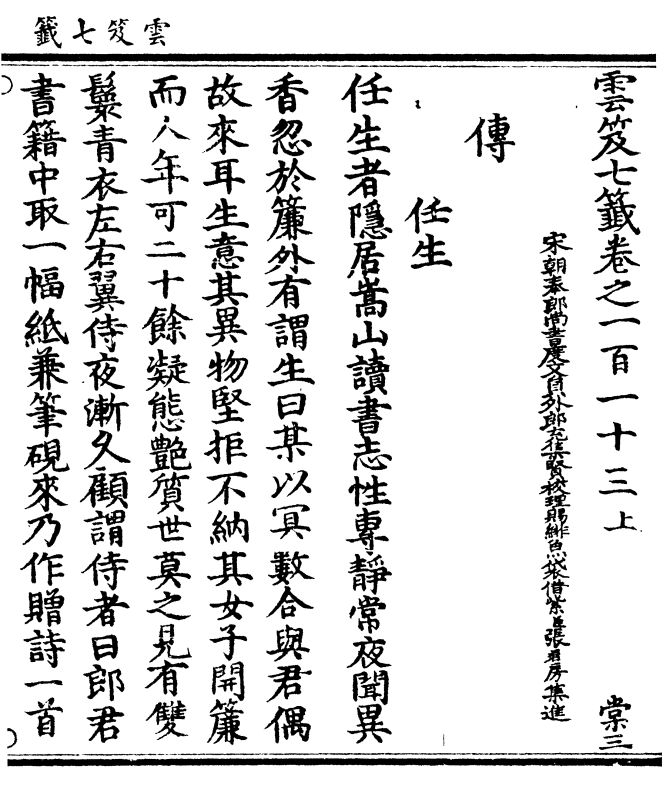 雲笈七籤
雲笈七籤卷之一百一十三上 棠三
宋朝奉郎尚書度支員外郎充集賢校理賜緋魚袋借紫臣張君房集進
傳
任生
任生者隱居嵩山讀書志性專靜常夜聞異
香忽於簾外有謂生曰某以冥數合與君偶
故來耳生意其異物堅拒不納其女子開簾
而入年可二十餘凝態艷質世莫之見有雙
鬟青衣左右翼侍夜漸久顧謂侍者曰郎君
書籍中取一幅紙兼筆硯來乃作贈詩一首